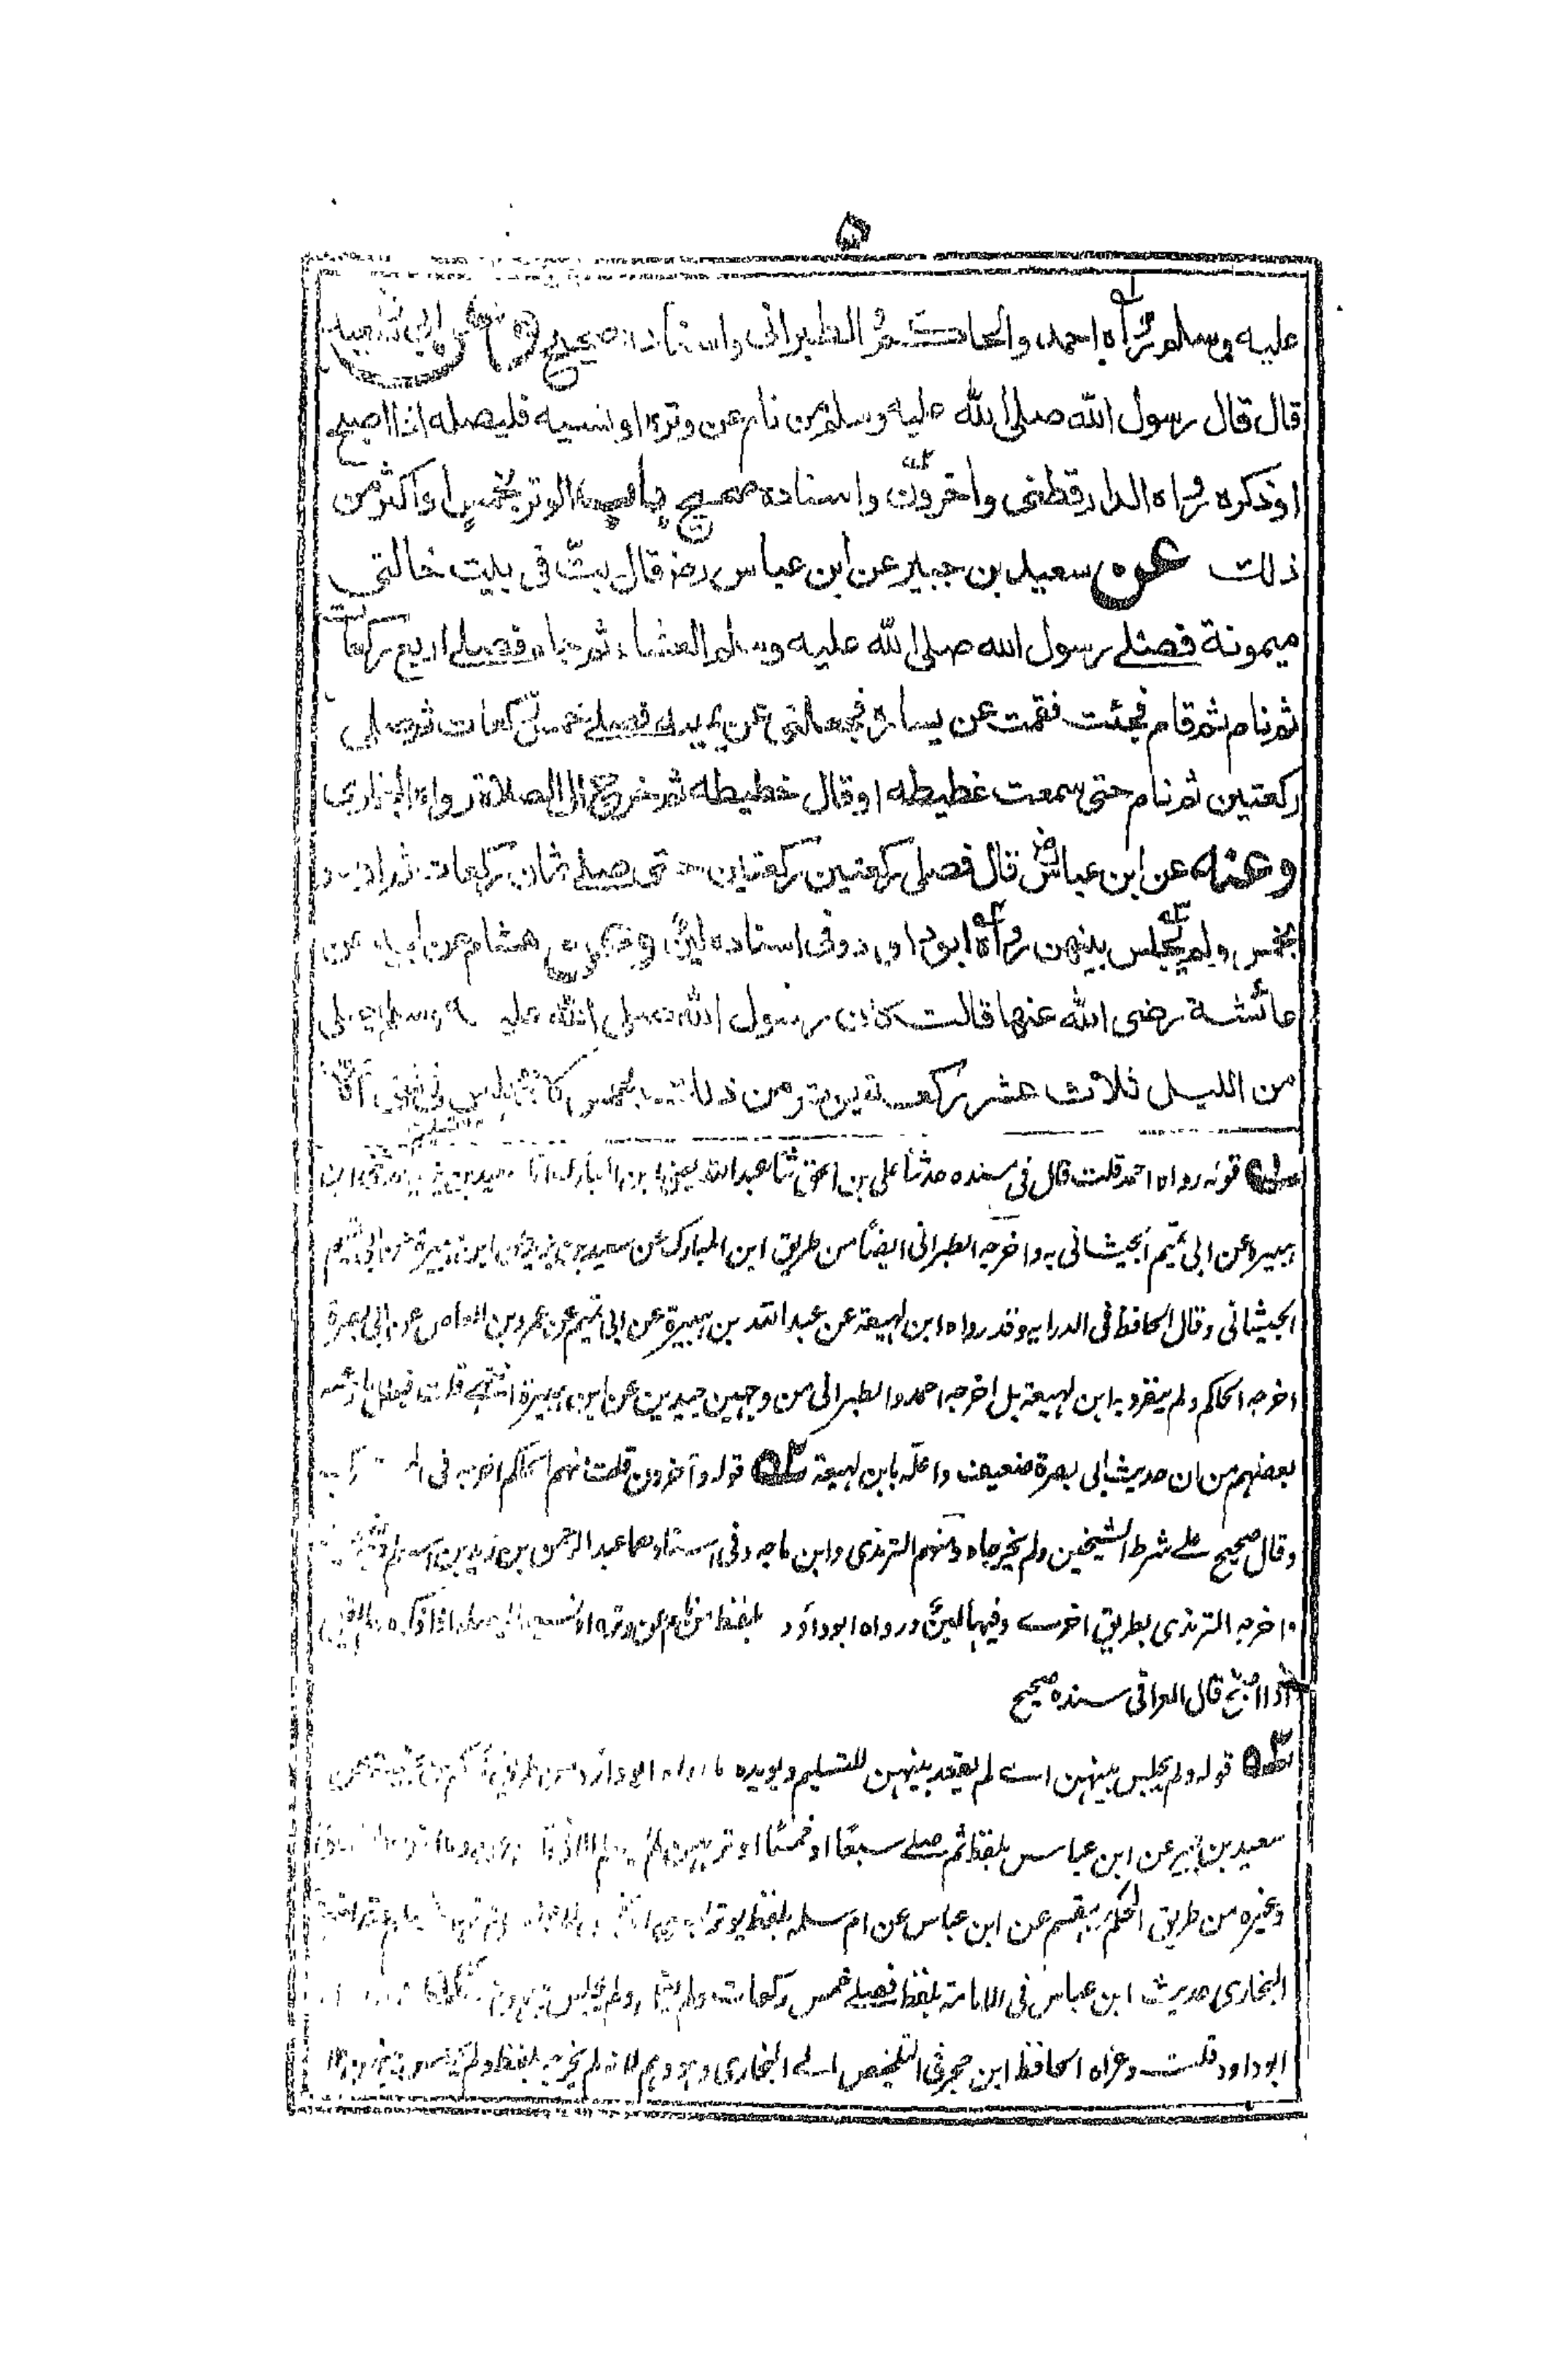 ۵
عليه وسلم رواه احمد والحاكم والطبرانى واسناده صحيح وعن ابى سعيد
قال قال رسول الله صلى الله عليه وسلم من نام عن وتره او نسيه فليصله اذا اصبح
او ذكره رواه الدارقطنى واخرون واسناده صحيح باب الوتر بخمس او اكثر من
ذلك عن سعيد بن جبير عن ابن عباس رض قال بتّ فى بيت خالتى
ميمونة فصلے رسول الله صلى الله عليه وسلم العشاء ثم جاء فصلے اربع ركعات
ثم نام ثم قام فجئت فقمت عن يساره فجعلنى عن يمينه فصلے خمس ركعات ثم صلى
ركعتين ثم نام حتى سمعت غطيطه او قال خطيطه ثم خرج الى الصلاة رواه البخارى
وعنه عن ابن عباس رض قال فصلى ركعتين ركعتين حتى صلے ثمان ركعات ثم اوتر
بخمس ولم يجلس بينهن رواه ابو داود وفى اسناده لين وعن هشام عن ابيه عن
عائشة رضى الله عنها قالت كان رسول الله صلى الله عليه وسلم يصلى
من الليل ثلاث عشر ركعة يوتر من ذلك بخمس لا يجلس فى شئ الا
قوله رواه احمد قلت قال فى مسنده حدثنا على بن اسحق ثنا عبد الله يعنى ابن المبارك انا سعيد بن يزيد حدثنى ابن
هبيرة عن ابى تميم الجيشانى به واخرجه الطبرانى ايضًا من طريق ابن المبارك عن سعيد بن يزيد عن ابن هبيرة عن ابى تميم
الجيشانى وقال الحافظ فى الدراية وقد رواه ابن لهيعة عن عبد الله بن هبيرة عن ابى تميم عن عمرو بن العاص عن ابى بصرة
اخرجه الحاكم ولم ينفرد به ابن لهيعة بل اخرجه احمد والطبرانى من وجهين جيدين عن ابن هبيرة انتهے قلت فبطل ما زعمه
بعضهم من ان حديث ابى بصرة ضعيف واعلّه بابن لهيعة قوله وآخرون قلت منهم الحاكم اخرجه فى
وقال صحيح علے شرط الشيخين ولم يخرجاه ومنهم الترمذى وابن ماجه وفى اسنادهما عبد الرحمن بن زيد بن اسلم
واخرجه الترمذى بطريق اخرے وفيها لين ورواه ابو داؤد بلفظ من نام عن وتره او نسيه فليصله اذا ذكره
اذا اصبح قال العراقى سنده صحيح
قوله ولم يجلس بينهن اے لم يقعد بينهن للتسليم ويويده ما رواه ابو داؤد من طريق الحكم بن عتيبة عن
سعيد بن جبير عن ابن عباس بلفظ ثم صلے سبعًا او خمسًا اوتر بهن لم يسلم الا فى
وغيره من طريق الحكم عن مقسم عن ابن عباس عن ام سلمه بلفظ يوتر
البخارى حديث ابن عباس فى الامامة بلفظ فصلے خمس ركعات ولم
ابو داود قلت وعزاه الحافظ ابن حجر فى التلخيص الے البخارى وهو وهم لانه لم يخرجه بلفظ ولم يجلس بينهن